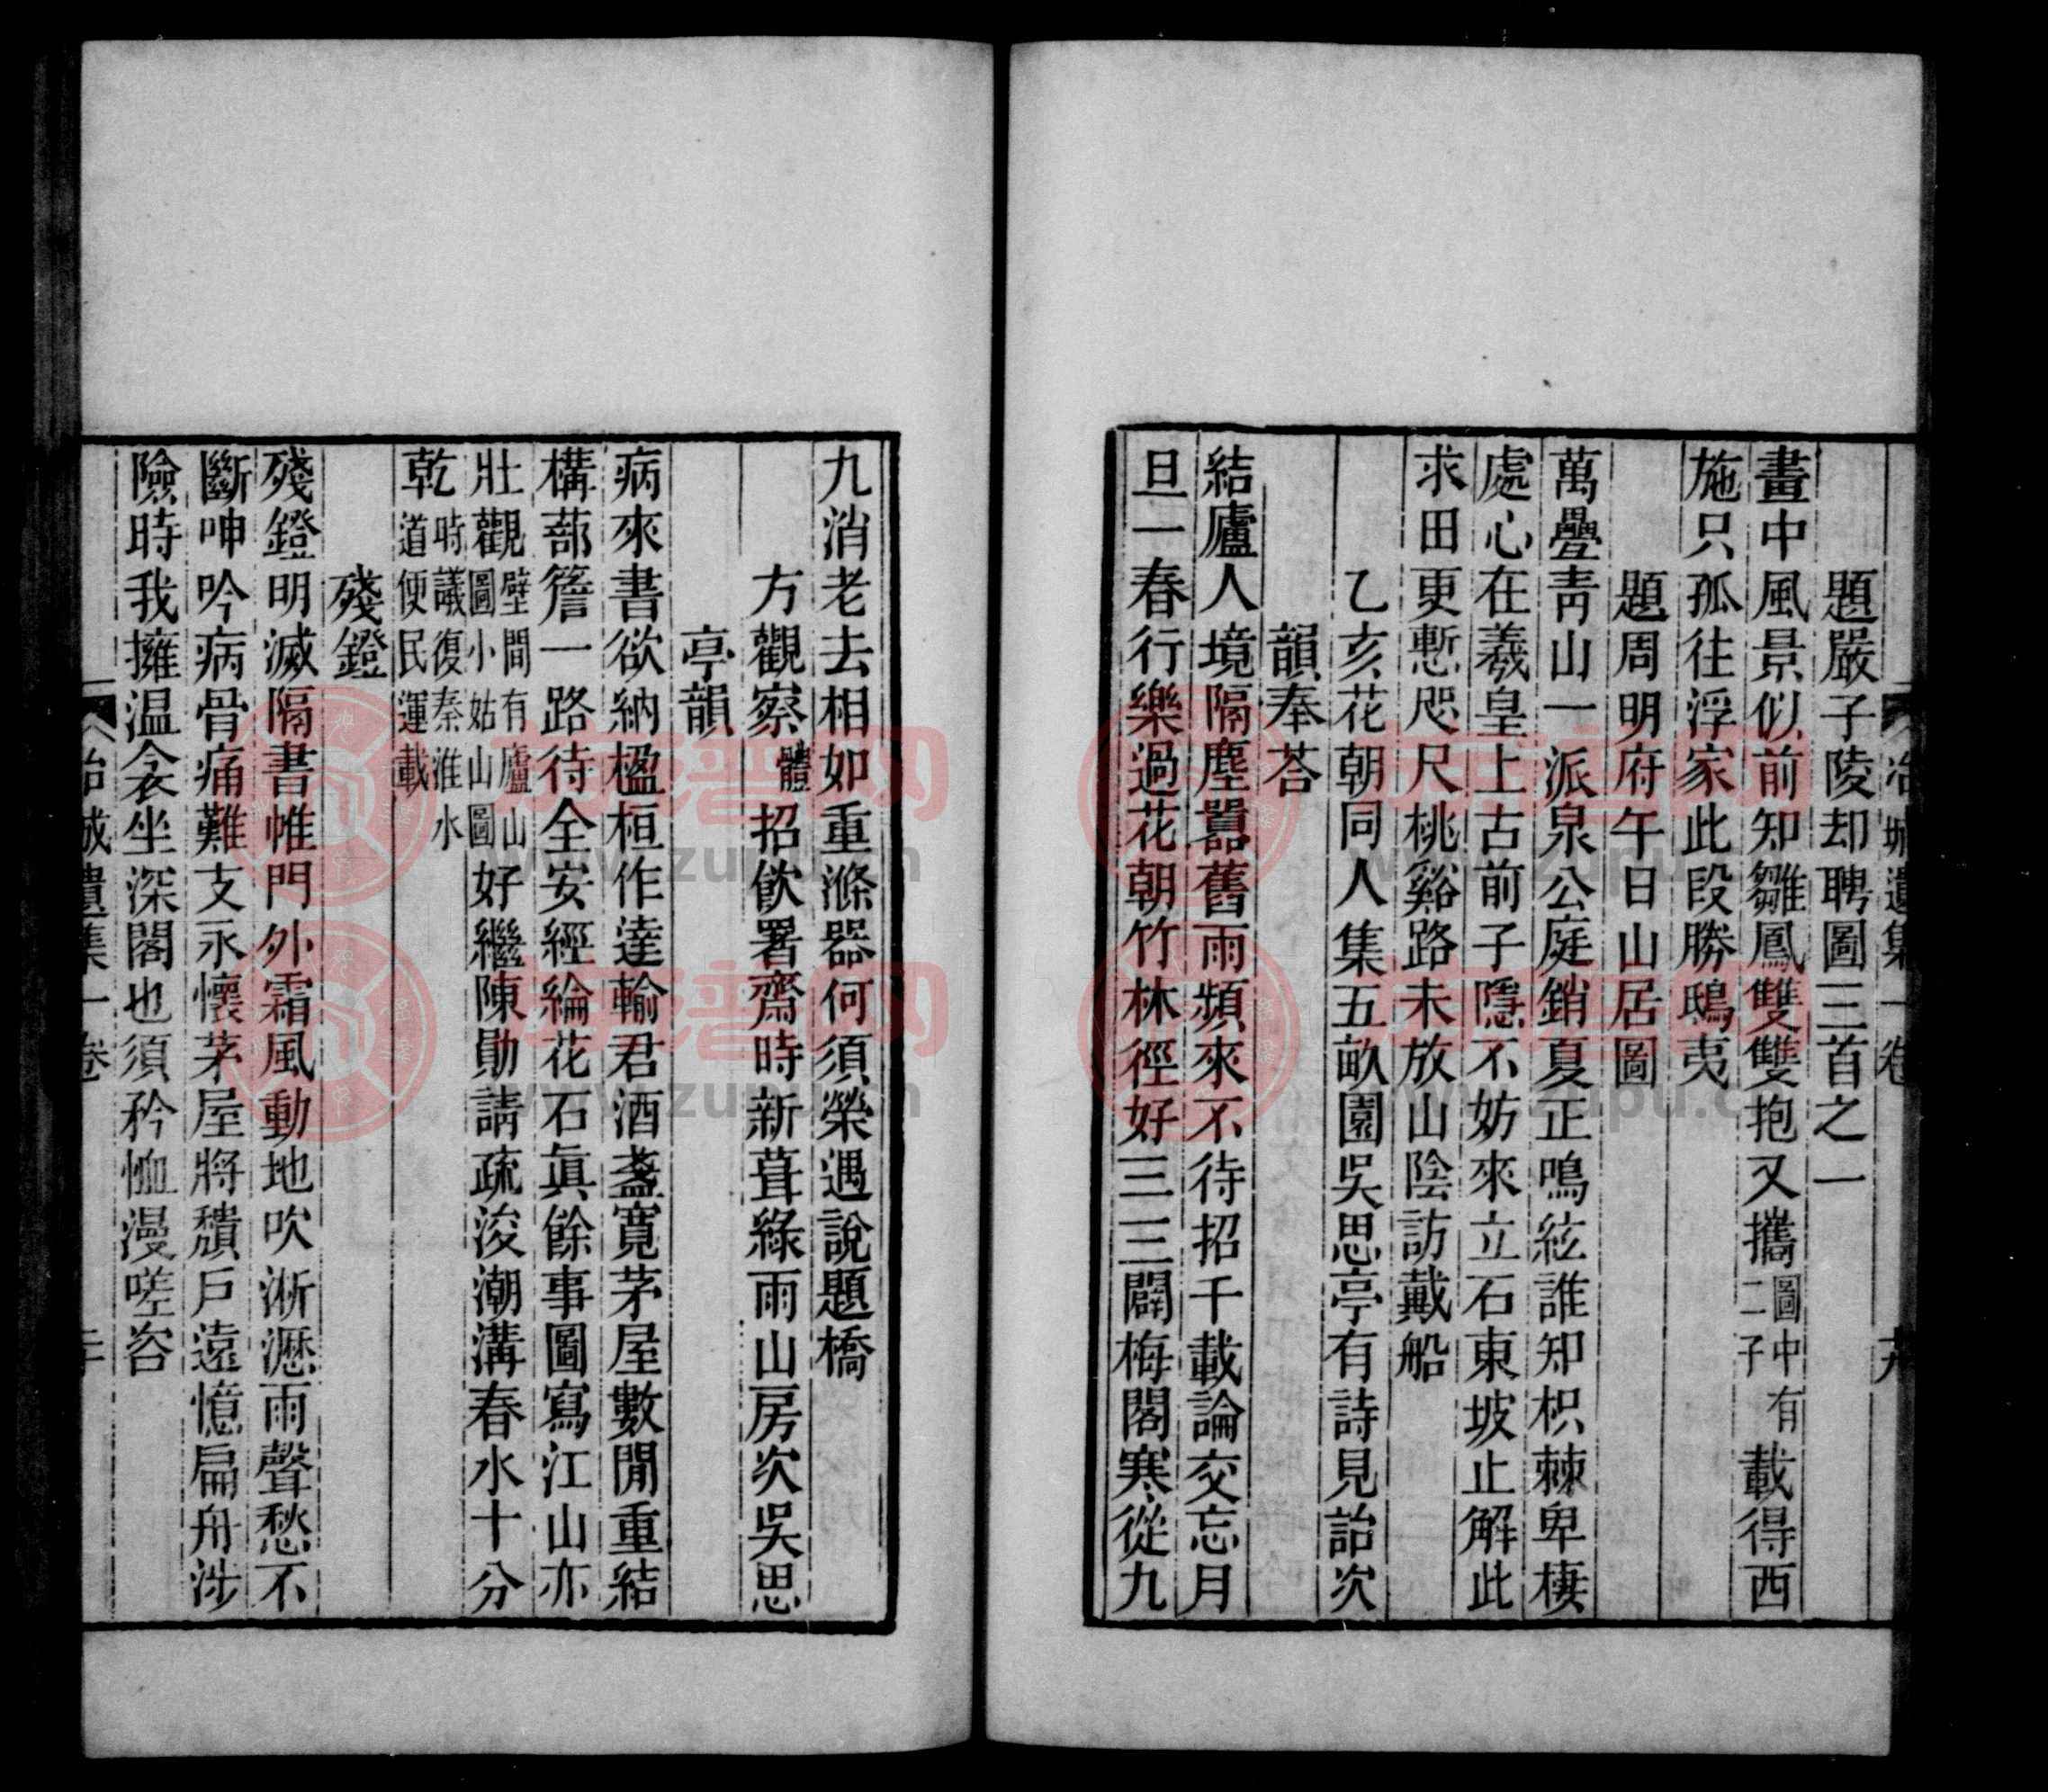 冶城遺集一卷
題嚴子陵却聘圖三首之一
畫中風景似前知雛鳳雙雙抱又攜圖中有二子載得西
施只孤往浮家此段勝鴟夷
題周明府午日山居圖
萬疊靑山一派泉公庭銷夏正鳴絃誰知枳棘卑棲
處心在羲皇上古前子隱不妨來立石東坡止解此
求田更慙咫尺桃谿路未放山陰訪戴船
乙亥花朝同人集五畝園吳思亭有詩見詒次
韻奉荅
結廬人境隔塵囂舊雨頻來不待招千載論交忘月
旦一春行樂過花朝竹林徑好三三闢梅閣寒從九
九消老去相如重滌器何須榮遇說題橋
方觀察體招飲署齋時新葺綠雨山房次吳思
亭韻
病來書欲納楹桓作達輸君酒盞寬茅屋數閒重結
構蔀簷一路待全安經綸花石眞餘事圖寫江山亦
壯觀壁間有廬山圖小姑山圖好繼陳勛請疏浚潮溝春水十分
乾時議復秦淮水道便民運載
殘鐙
殘鐙明滅隔書帷門外霜風動地吹淅瀝雨聲愁不
斷呻吟病骨痛難支永懷茅屋將穨戶遠憶扁舟涉
險時我擁温衾坐深閣也須矜恤漫嗟咨
冶城遺集一卷